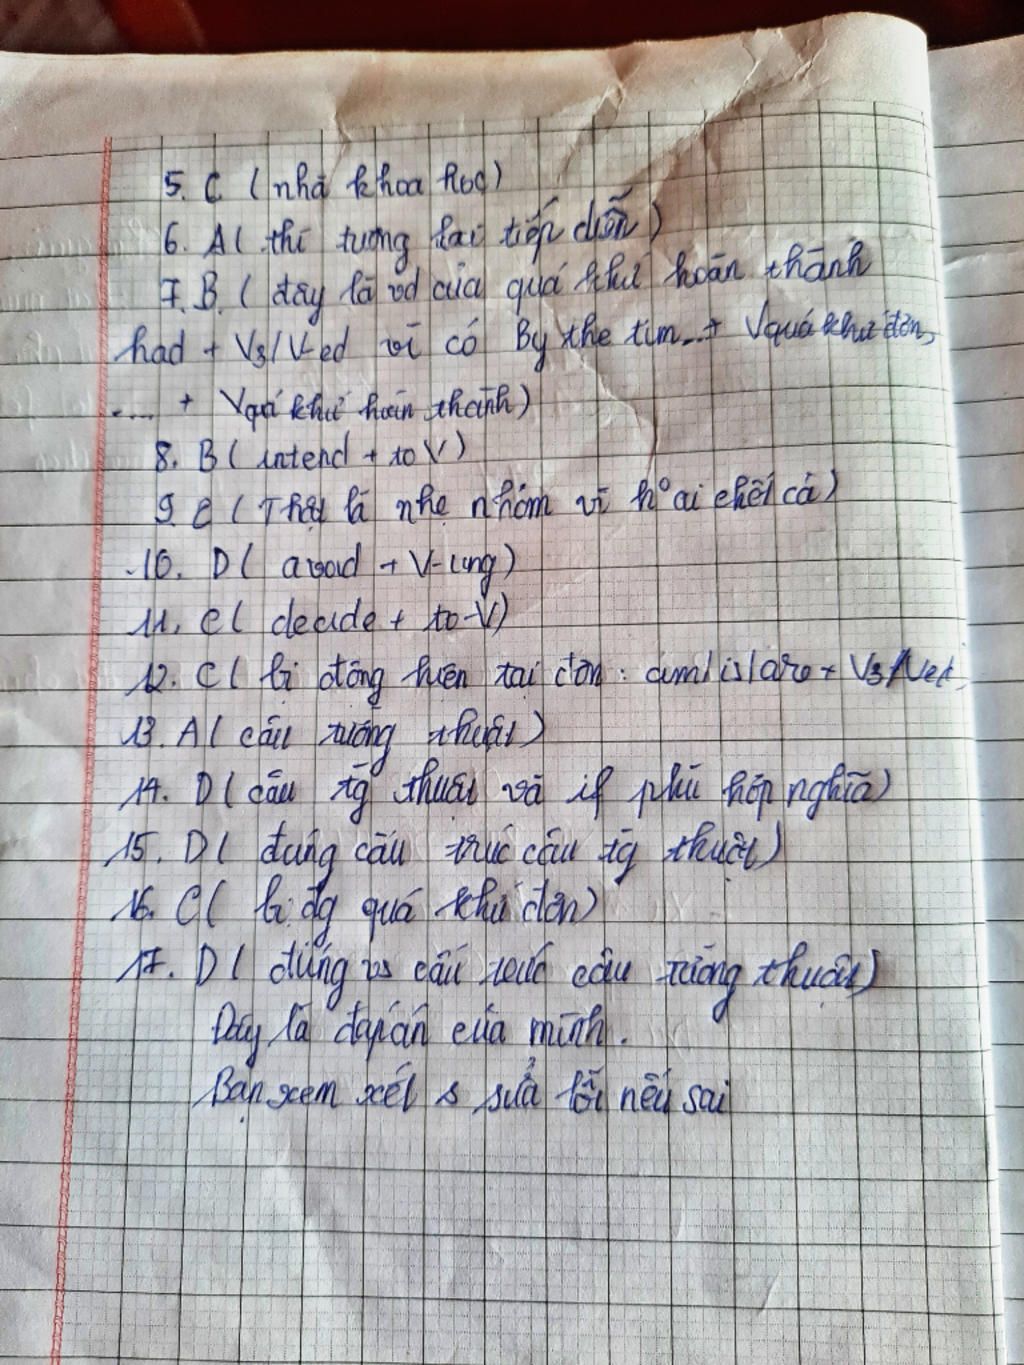 5. C ( nhà khoa học)
6. A ( thì tương lai tiếp diễn )
7. B. ( đây là vd của quá khứ hoàn thành
had + V3/V-ed vì có By the tim... + Vquá khứ đơn,
.... + Vquá khứ hoàn thành)
8. B ( intend + to V )
9. C ( Thật là nhẹ nhõm vì ko ai chết cả )
10. D ( avoid + V-ing )
11. C ( decide + to-V)
12. C ( bị động hiện tại đơn : am/is/are + V3/Ved)
13. A ( câu tường thuật )
14. D ( câu tg thuật và if phù hợp nghĩa)
15. D ( đúng cấu trúc câu tg thuật)
16. C ( bị đg quá khứ đơn)
17. D ( đúng vs cấu trúc câu tường thuật)
Đây là đáp án của mình.
Bạn xem xét s sửa lỗi nếu sai